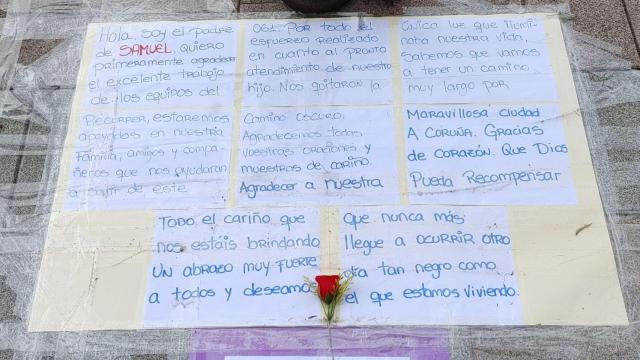 Hola. Soy el padre
de SAMUEL. Quiero
primeramente agradecer
el excelente trabajo
de los equipos del
061. Por todo el
esfuerzo realizado
en cuanto al pronto
atendimiento de nuestro
hijo. Nos quitaron la
única luz que ilumi
naba nuestra vida,
Sabemos que vamos
a tener un camino
muy largo por
Recorrer, estaremos
apoyados en nuestra
Familia, amigos y compa-
ñeros que nos ayudaran
a salir de este
Camino oscuro.
Agradecemos todos,
vuestras oraciones y
muestras de cariño
Agradecer a nuestra
Maravillosa ciudad
A Coruña. Gracias
de corazón. Que Dios
Pueda Recompensar
TODO el cariño que
nos estáis brindando
UN abrazo muy fuerte
a todos y deseamos
que nunca más
llegue a ocurrir otro
día tan negro como
el que estamos viviendo.